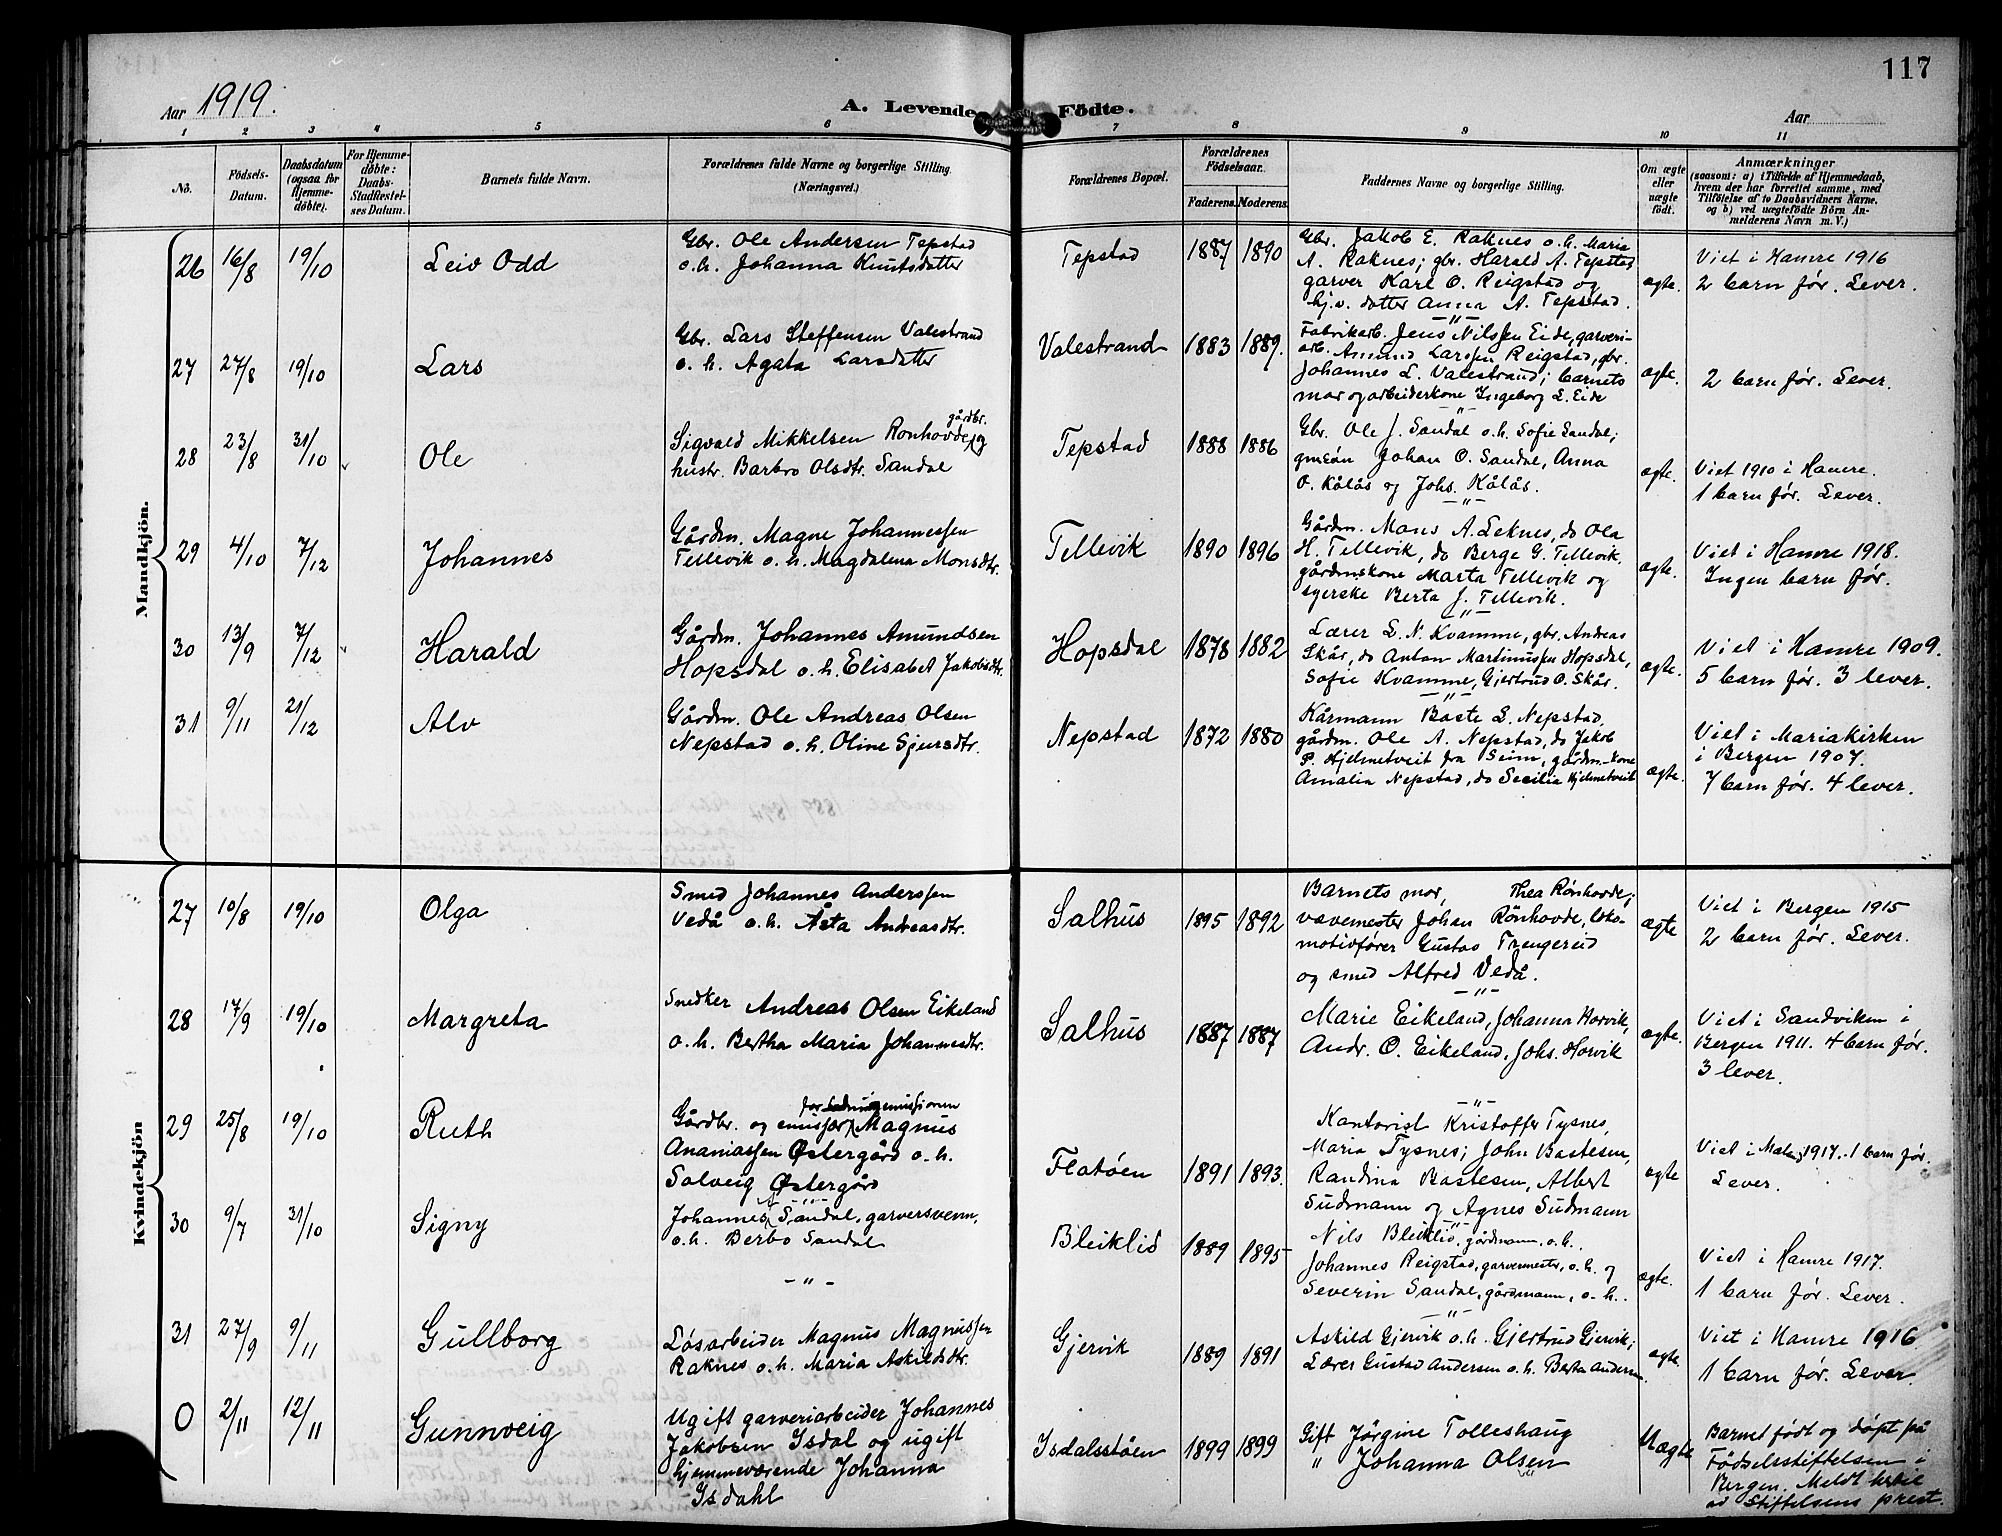 117
Aar 1919.
A. Levende Födte.
Aar
1 2 3 4 5 6 7 8 9 10 11
No.
Födsels-
Datum.
Daabsdatum
(ogsaa for
Hjemme-
döbte).
For Hjemme-
döbte:
Daabs-
Stadfæstel-
ses Datum.
Barnets fulde Navn.
Forældrenes fulde Navne og borgerlige Stilling
(Næringsvei.)
Forældrenes Bopæl.
Forældrenes
Födselsaar.
Faderens. Moderens.
Faddernes Navne og borgerlige Stilling.
Om ægte
eller
uægte
födt.
Anmærkninger
(saasom: a) i Tilfælde af Hjemmedaab,
hvem der har forrettet samme, med
Tilföielse af to Daabsvidners Navne.
og b) ved uægtefödte Börn An-
melderens Navn m. V.)
Mandkjön.
26 16/8 19/10 Leiv Odd
Gbr. Ole Andersen Tepstad
o.h. Johanna Knutsdatter
Tepstad 1887 1890
Gbr. Jakob E. Raknes o.h. Maria
A. Raknes; gbr. Harald A. Tepstad,
garver Karl O. Reigstad og
hj.v. datter Anna A. Tepstad.
ægte.
Viet i Hamre 1916
2 barn før. Lever.
27 27/8 19/10 Lars
Gbr. Lars Steffensen Valestrand
o. h. Agata Larsdatter
Valestrand 1883 1889.
Fabrikarb. Jens Nilssen Eide, garveri-
arb. Amund Larssen Reigstad, gbr.
Johannes L. Valestrand; barnets
mor og arbeiderkone Ingeborg L. Eide
ægte.
2 barn før. Lever.
28 23/8 31/10 Ole
gårdbr.
Sigvald Mikkelsen Rønhovde, og
hustr. Barbro Olsdtr. Sandal
Tepstad 1888 1886
Gbr. Ole J. Sandal o.h. Sofie Sandal;
Johan O. Sandal, Anna
O. Kålås og Johs. Kålås.
ægte.
Viet 1910 i Hamre.
1 barn før. Lever.
29 4/10 7/12 Johannes
Gårdm. Magne Johannessen
Tellevik o. h. Magdalena Monsdtr.
Tellevik 1890 1896
Gårdm. Mans A. Leknes, do Ola
H. Tellevik, do Berge G. Tellevik,
gårdmskone Marta Tellevik og
syerske Berta J. Tellevik.
ægte.
Viet i Hamre 1918.
Ingen barn før.
30 13/9 7/12 Harald
Gårdm. Johannes Amundsen
Hopsdal o.h. Elisabet Jakobsdtr.
Hopsdal 1878 1882
Lærer L. N. Kvamme, gbr. Andreas
Skår, do Anton Martinussen Hopsdal,
Sofie Kvamme, Gjertrud O. Skår.
ægte.
Viet i Hamre 1909.
5 barn før. 3 lever.
31 9/11 21/12 Alv
Gårdm. Ole Andreas Olsen
Nepstad o.h. Oline Sjursdtr.
Nepstad 1872 1880
Kårmann Baste L. Nepstad,
gårdm. Ole A. Nepstad, do Jakob
P. Hjelmetveit fra Seim, gårdm.-kone
Amalia Nepstad, do Secilia Hjelmetveit
ægte.
Viet i Mariakirken
i Bergen 1907.
7 barn før. 4 lever.
Kvindekjön
27 10/8 19/10 Olga
Smed Johannes Anderssen
Vedå o.h. Åsta Andreasdtr.
Salhus 1895 1892
Barnets mor, Thea Rønhovde;
vævemester Johan Rønhovde, loko-
motivfører Gustav Trengereid
og smed Alfred Vedå.
ægte
Viet i Bergen 1915
2 barn før. Lever.
28 17/9 19/10 Margreta
Snedker Andreas Olsen Eikeland
o.h. Bertha Maria Johannesdtr.
Salhus 1887 1887
Marie Eikeland, Johanna Horvik,
Andr. O. Eikeland, Johs. Horvik
ægte.
Viet i Sandviken i
Bergen 1911. 4 barn før.
3 lever.
29 25/8 19/10 Ruth
Gårdbr. og emissær Magnus
Ananiassen Østergård o.h.
Solveig Østergård
Flatøen 1891 1893.
Kantorist Kristoffer Tysnes,
Maria Tysnes; John Bastesen,
Randina Bastesen, Albert
Sudmann og Agnes Sudmann
ægte
Viet i 1917. 1 barn før.
Lever.
30 9/7 31/10 Signy
Johannes A. Sandal, garversvenn,
o.h. Berbo Sandal
Bleiklid 1889 1895
Nils Bleiklid, gårdmann, o.h.,
Johannes Reigstad, garvermester, o.h. og
Severin Sandal, gårdmann, o-h.
ægte.
Viet i Hamre 1917.
1 barn før. Lever.
31 27/9 9/11 Gullborg
Løsarbeider Magnus Magnussen
Raknes o.h. Maria Askildsdtr.
Gjervik 1889 1891
Askild Gjervik o.h. Gjertrud Gjervik;
Lærer Gustav Andersen o.h. Berta Andersen.
ægte.
Viet i Hamre 1916
1 barn før. Lever.
0 2/11 12/11 Gunnveig
Ugift garveriarbeider Johannes
Jakobsen Isdal og ugift
hjemmeværende Johanna
Isdahl
Isdalsstøen 1899 1899
Gift Jørgine Tolleshaug
" Johanna Olsen
Uægte
Barnet født og døpt på
Fødselsstiftelsen i
Bergen. Meldt hertil
av Stiftelsens prest.